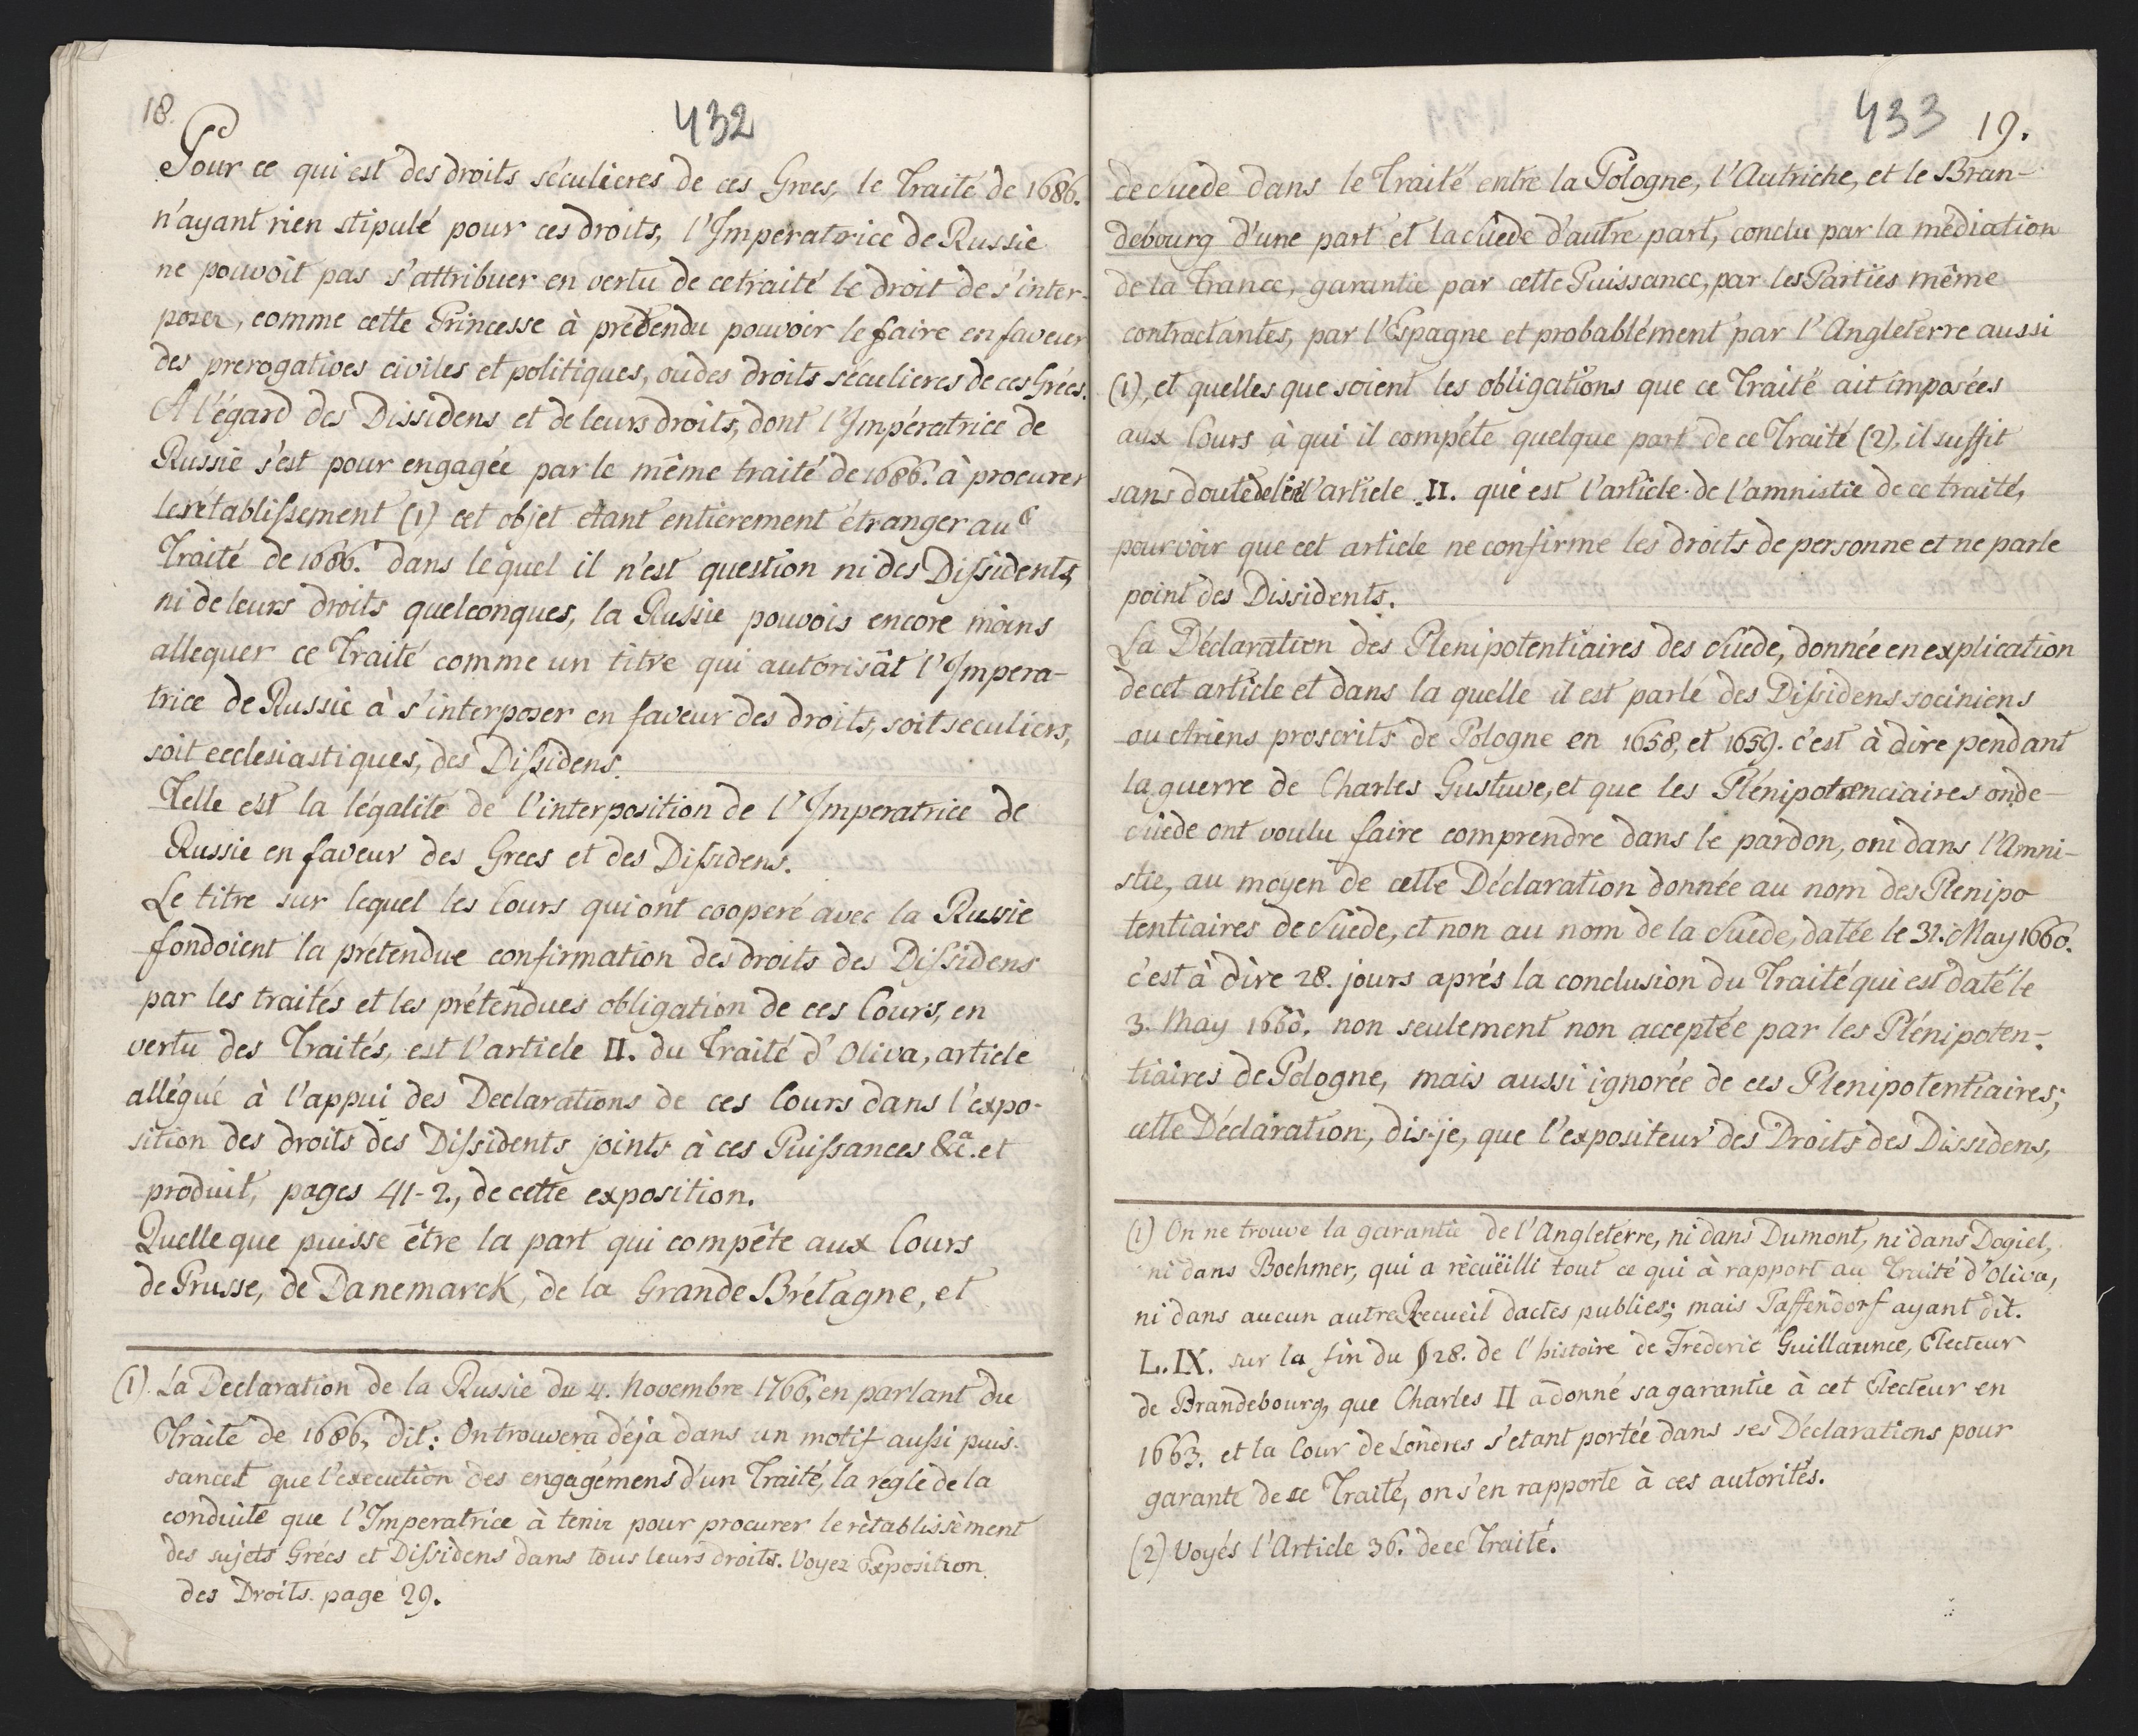 18.
432
Pour ce qui est des droits séculieres de ces Grecs, le Traité de 1686.
n'ayant rien stipulé pour ces droits, l'Imperatrice de Russie
ne pouvoit pas s'attribuer en vertu de ce traité le droit de s'inter-
poser, comme cette Princesse à prétendu pouvoir le faire en faveur
des prerogatives civiles et politiques, ou des droits séculieres de ces Grécs.
A l'égard des Dissidens et de leurs droits, dont l'Impératrice de
Russie s'est pour engagée par le même traité de 1686. à procurer
le rétablissement (1) cet objet étant entierement étranger au
Traité de 1686. dans lequel il n'est question ni des Dissidents,
ni de leurs droits quelconques, la Russie pouvois encore moins
alleguer ce Traité comme un titre qui autorisât l'Impera-
trice de Russie à s'interposer en faveur des droits, soit seculiers,
soit ecclesiastiques, des Dissidens.
Telle est la légalité de l'interposition de l'Imperatrice de
Russie en faveur des Grecs et des Dissidens.
Le titre sur lequel les Cours qui ont cooperé avec la Russie
fondoient la prétendue confirmation des droits des Dissidens
par les traités et les prétendues obligation de ces Cours, en
vertu des Traités, est l'article II. du Traité d'Oliva, article
allégué à l'appui des Declarations de ces Cours dans l'expo-
sition des droits des Dissidents joints à ces Puissances &ca. et
produit, pages 41-2, de cette exposition.
Quelle que puisse être la part qui compête aux Cours
de Prusse, de Danemarck, de la Grande Brétagne, et
(1). La Declaration de la Russie du 4. Novembre 1766, en parlant du
Traité de 1686, dit: On trouvera déja dans un motif aussi puis-
sancet que l'execution des engagémens d'un Traité, la régle de la
conduite que l'Imperatrice à tenir pour procurer le rétablissement
des sujets Grécs et Dissidens dans tous leurs droits. Voyez Exposition
des Droits. page 29.
433
19.
de Suede dans le Traité entre la Pologne, l'Autriche, et le Bran-
debourg d'une part et la Suede d'autre part, conclu par la médiation
de la France, garantie par cette Puissance, par les Parties même
contractantes, par l'Espagne et probablément par l'Angleterre aussi
(1), et quelles que soient les obligations que ce Traité ait imposées
aux Cours à qui il compéte quelque part de ce Traité (2), il suffit
sans doute de lire l'article II. que est l'article de l'amnistie de ce traité,
pour voir que cet article ne confirme les droits de personne et ne parle
point des Dissidents.
La Déclaration des Plenipotentiaires des Suede, donnée en explication
de cet article et dans la quelle il est parlé des Dissidens sociniens
ou Ariens proscrits de Pologne en 1658, et 1659. c'est à dire pendant
la guerre de Charles Gustuve, et que les Plénipotenciaires onde-
Suede ont voulu faire comprendre dans le pardon, oni dans l'Amni-
stie, au moyen de cette Déclaration donnée au nom des Plenipo
tentiaires de Suede, et non au nom de la Suede, datée le 31. May 1660.
c'est à dire 28. jours aprés la conclusion du Traité qui est daté le
3. May 1660. non seulement non acceptée par les Plénipoten-
tiaires de Pologne, mais aussi ignorée de ces Plenipotentiaires;
cette Déclaration, dis-je, que l'expositeur des Droits des Dissidens,
(1) On ne trouve la garantie de l'Angleterre, ni dans Dumont, ni dans Dogiel,
ni dans Boehmer, qui a récüeïlli tout ce qui à rapport au Traité d'Oliva,
ni dans aucun autre Recueil dactes publics; mais Paffendorf ayant dit.
L. IX. sur la fin du § 28. de l'histoire de Frederic Guillaunce, Electeur
de Brandebourg, que Charles II a donné sa garantie à cet Electeur en
1663. et la Cour de Londres s'etant portée dans ses Déclarations pour
garante de ce Traité, on s'en rapporte à ces autorités.
(2) Voyés l'Article 36. de ce Traité.